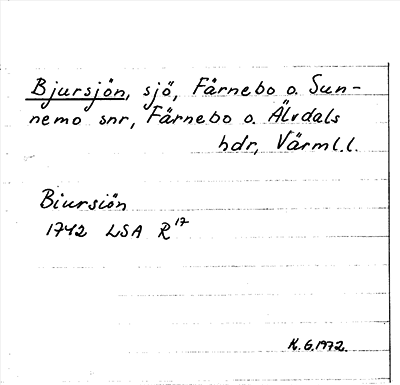 Bjursjön, sjö, Färnebo o. Sun-
nemo snr, Färnebo o. Älvdals
hdr, Värml.l.
Biursiön
1742 LSA R17
K.G.1972.